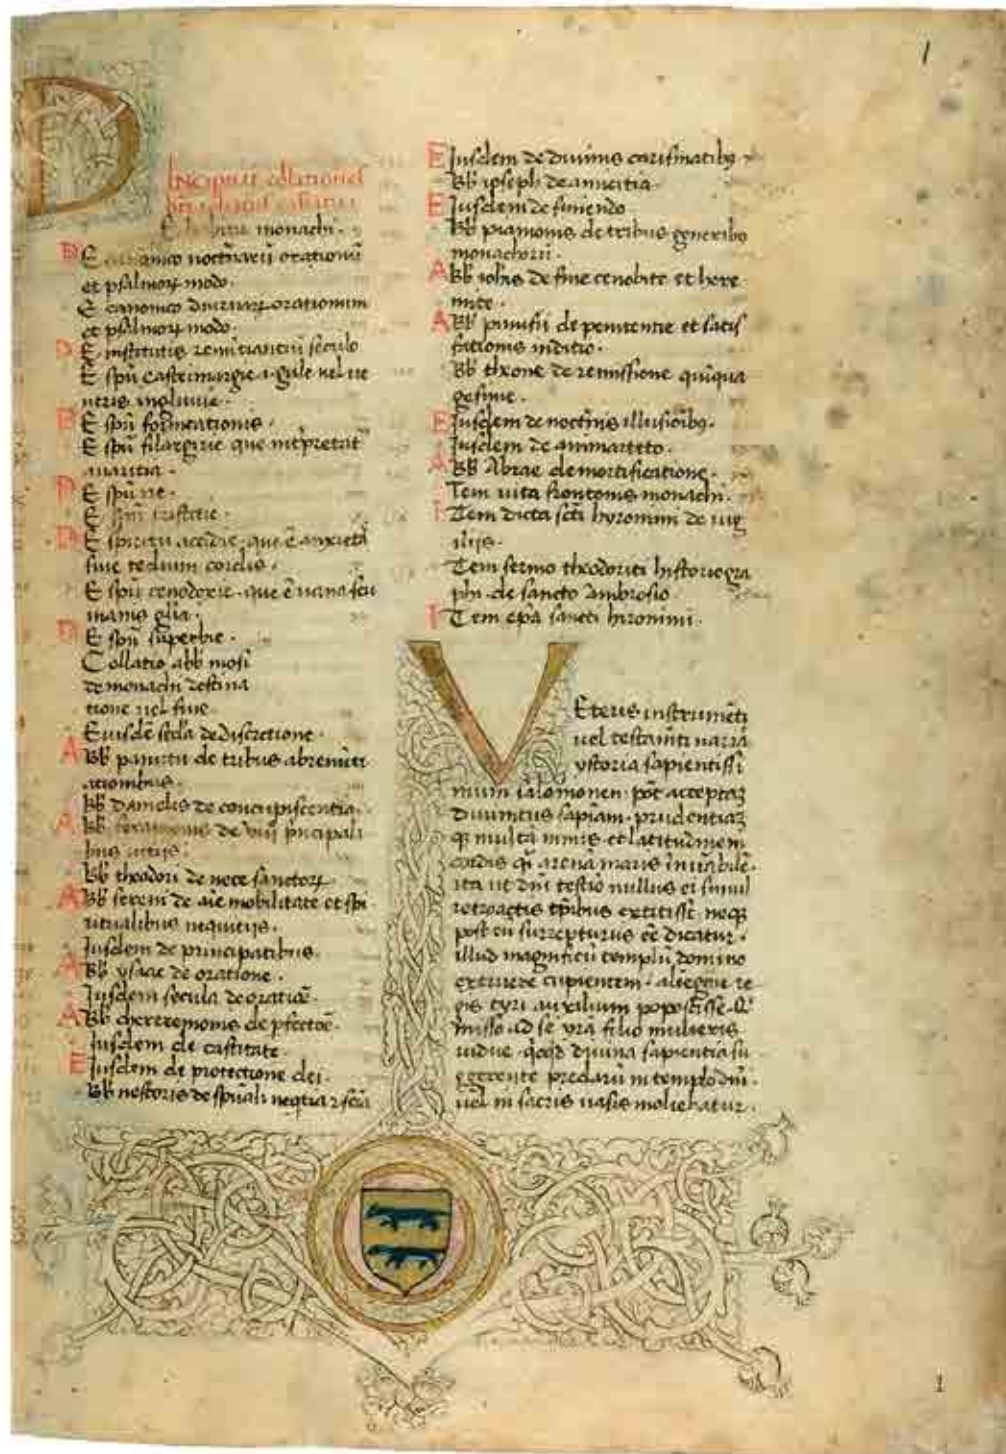 1
Incipiunt collationes
E habitu monachi.
DE canonico nocturnarũ orationũ
et psalmoꝝ modo.
E canonico diurnaꝝ orationum
et psalmoꝝ modo.
DE institutis renuntiantiũ seculo
E spũ castrimargie .i. gule vel ve
ntris ingluvie.
DE spũ fornicationis.
E spũ filargirie que intp̃retat̃
avaritia.
DE spũ ire.
E spũ tristitie.
DE spiritu accidie que ẽ anxietas
sive tedium cordis.
E spũ cenodoxie. que ẽ vana seu
inanis glĩa.
DE spũ superbie.
Collatio abb̃ mosi
de monachi destina
tione vel fine.
Eiusdẽ scd̃a de discretione.
ABb̃ panutii de tribus abrenũti
ationibus.
Bb̃ danielis de concupiscentia.
ABb̃ serapionis de viii p̃ncipali
bus vitiis.
Bb̃ theodori de nece sanctoꝝ
ABb̃ sereni de aĩe mobilitate et spi
ritualibus nequitijs.
Iusdem de principatibus.
ABb̃ ysaac de oratione.
Iusdem secũda de oratiõe.
ABb̃ cheremonis de p̃fectiõe.
Iusdem de castitate.
EIusdem de protectione dei.
Bb̃ nestoris de spũali
EIusdem de divinis carismatibꝰ
Bb̃ ioseph de amicitia.
EIusdem de finiendo
Bb̃ piamonis de tribus generibꝰ
monachorũ.
ABb̃ ioh̃is de fine cenobite et here
mite.
ABb̃ pinufii de penitentie et satis
fationis inditio.
Bb̃ theone de remissione quinqua
gesime.
EIusdem de nocturnis illusiõibꝰ.
Iusdem de anamarteto.
ABb̃ Abrae de mortificatione.
Tem vita frontonis monachi.
ITem dicta scti hyronimi de vig
ilijs.
Tem sermo theodoriti historiogra
phi. de sancto Ambrosio.
ITem ep̃a sancti hironimi.
VEteris instrumẽti
vel testamẽti narrat
ystoria sapientissi
mum salomonem. põt acceptaʒ
divinitus sapiam. prudentiaʒ
qꝫ multã nimis. et latitudinem
cordis q̃si arenã maris inũabilẽ.
ita ut dñi testiõ nullus ei simil
retroactis tp̃ibus extitisse neqꝫ
post eũ surrecturus eẽ dicatur.
illud magnificũ templũ domino
extruere cupientem. alienigene re
gis tyri auxilium poposcisse. Q
misso ad se yrã filio mulieris
vidue. qꝫcqd divina sapientia su
ggerente preclarũ in templo dñi.
vel in sacris vasis moliebatur.
1